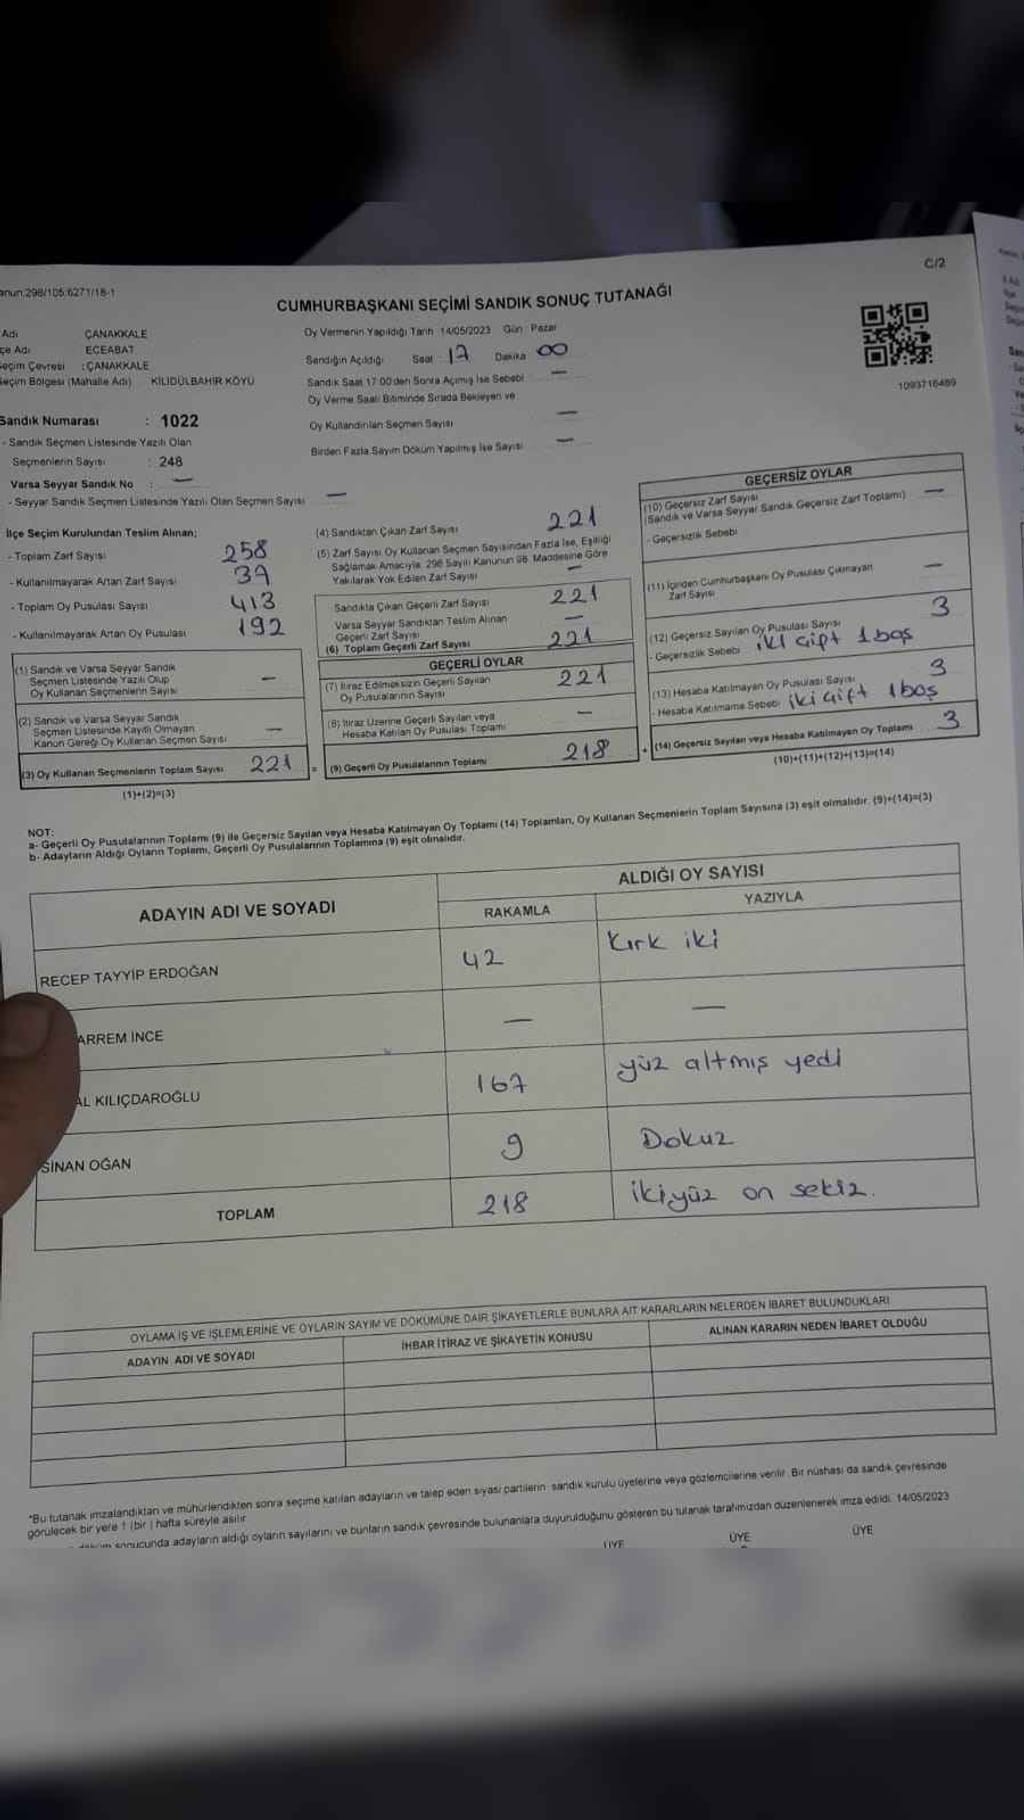 C/2
anun:298/105;6271/18-1
CUMHURBAŞKANI SEÇİMİ SANDIK SONUÇ TUTANAĞI
Adı ÇANAKKALE
çe Adı ECEABAT
Seçim Çevresi :ÇANAKKALE
Seçim Bölgesi (Mahalle Adı) KİLİDÜLBAHİR KÖYÜ
Oy Vermenin Yapıldığı Tarih 14/05/2023 Gün : Pazar
Sandığın Açıldığı Saat 17 Dakika 00
Sandık Saat 17:00'den Sonra Açılmış İse Sebebi —
Oy Verme Saati Bitiminde Sırada Bekleyen ve
Oy Kullandırılan Seçmen Sayısı —
Birden Fazla Sayım Döküm Yapılmış İse Sayısı —
1093716489
Sandık Numarası : 1022
- Sandık Seçmen Listesinde Yazılı Olan
Seçmenlerin Sayısı : 248
Varsa Seyyar Sandık No : —
- Seyyar Sandık Seçmen Listesinde Yazılı Olan Seçmen Sayısı —
İlçe Seçim Kurulundan Teslim Alınan;
- Toplam Zarf Sayısı 258
- Kullanılmayarak Artan Zarf Sayısı
- Toplam Oy Pusulası Sayısı 413
- Kullanılmayarak Artan Oy Pusulası 192
(1) Sandık ve Varsa Seyyar Sandık
Seçmen Listesinde Yazılı Olup
Oy Kullanan Seçmenlerin Sayısı —
(2) Sandık ve Varsa Seyyar Sandık
Seçmen Listesinde Kayıtlı Olmayan
Kanun Gereği Oy Kullanan Seçmen Sayısı —
(3) Oy Kullanan Seçmenlerin Toplam Sayısı 221
(1)+(2)=(3)
(4) Sandıktan Çıkan Zarf Sayısı 221
(5) Zarf Sayısı Oy Kullanan Seçmen Sayısından Fazla İse, Eşitliği
Sağlamak Amacıyla, 298 Sayılı Kanunun 98. Maddesine Göre
Yakılarak Yok Edilen Zarf Sayısı —
Sandıkta Çıkan Geçerli Zarf Sayısı 221
Varsa Seyyar Sandıktan Teslim Alınan
Geçerli Zarf Sayısı —
(6) Toplam Geçerli Zarf Sayısı 221
GEÇERLİ OYLAR
(7) İtiraz Edilmeksizin Geçerli Sayılan
Oy Pusulalarının Sayısı 221
(8) İtiraz Üzerine Geçerli Sayılan veya
Hesaba Katılan Oy Pusulası Toplamı —
= (9) Geçerli Oy Pusulalarının Toplamı 218
GEÇERSİZ OYLAR
(10) Geçersiz Zarf Sayısı
(Sandık ve Varsa Seyyar Sandık Geçersiz Zarf Toplamı) —
- Geçersizlik Sebebi
(11) İçinden Cumhurbaşkanı Oy Pusulası Çıkmayan
Zarf Sayısı —
(12) Geçersiz Sayılan Oy Pusulası Sayısı 3
- Geçersizlik Sebebi iki çift 1 boş
(13) Hesaba Katılmayan Oy Pusulası Sayısı 3
- Hesaba Katılmama Sebebi iki çift 1 boş
+ (14) Geçersiz Sayılan veya Hesaba Katılmayan Oy Toplamı 3
(10)+(11)+(12)+(13)=(14)
NOT:
a- Geçerli Oy Pusulalarının Toplamı (9) ile Geçersiz Sayılan veya Hesaba Katılmayan Oy Toplamı (14) Toplamları, Oy Kullanan Seçmenlerin Toplam Sayısına (3) eşit olmalıdır. (9)+(14)=(3)
b- Adayların Aldığı Oyların Toplamı, Geçerli Oy Pusulalarının Toplamına (9) eşit olmalıdır.
ADAYIN ADI VE SOYADI
ALDIĞI OY SAYISI
RAKAMLA YAZIYLA
RECEP TAYYİP ERDOĞAN 42 Kırk iki
ARREM İNCE — —
AL KILIÇDAROĞLU 167 yüz altmış yedi
SİNAN OĞAN 9 Dokuz
TOPLAM 218 ikiyüz on sekiz.
OYLAMA İŞ VE İŞLEMLERİNE VE OYLARIN SAYIM VE DÖKÜMÜNE DAİR ŞİKAYETLERLE BUNLARA AİT KARARLARIN NELERDEN İBARET BULUNDUKLARI
ADAYIN ADI VE SOYADI İHBAR İTİRAZ VE ŞİKAYETİN KONUSU ALINAN KARARIN NEDEN İBARET OLDUĞU
*Bu tutanak imzalandıktan ve mühürlendikten sonra seçime katılan adayların ve talep eden siyasi partilerin sandık kurulu üyelerine veya gözlemcilerine verilir. Bir nüshası da sandık çevresinde
görülecek bir yere 1 (bir) hafta süreyle asılır.
sonucunda adayların aldığı oyların sayılarını ve bunların sandık çevresinde bulunanlara duyurulduğunu gösteren bu tutanak tarafımızdan düzenlenerek imza edildi. 14/05/2023
ÜYE ÜYE ÜYE